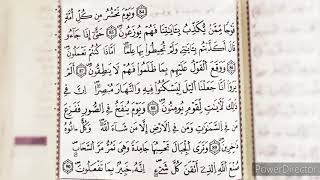 وَيَوْمَ نَحْشُرُ مِن كُلِّ أُمَّةٍ
فَوْجًا مِّمَّن يُكَذِّبُ بِـَٔايَٰتِنَا فَهُمْ يُوزَعُونَ ٨٣ حَتَّىٰٓ إِذَا جَآءُو
قَالَ أَكَذَّبْتُم بِـَٔايَٰتِى وَلَمْ تُحِيطُوا۟ بِهَا عِلْمًا أَمَّاذَا كُنتُمْ تَعْمَلُونَ ٨٤
وَوَقَعَ ٱلْقَوْلُ عَلَيْهِم بِمَا ظَلَمُوا۟ فَهُمْ لَا يَنطِقُونَ ٨٥ أَلَمْ
يَرَوْا۟ أَنَّا جَعَلْنَا ٱلَّيْلَ لِيَسْكُنُوا۟ فِيهِ وَٱلنَّهَارَ مُبْصِرًا إِنَّ فِى
ذَٰلِكَ لَـَٔايَٰتٍ لِّقَوْمٍ يُؤْمِنُونَ ٨٦ وَيَوْمَ يُنفَخُ فِى ٱلصُّورِ فَفَزِعَ
مَن فِى ٱلسَّمَٰوَٰتِ وَمَن فِى ٱلْأَرْضِ إِلَّا مَن شَآءَ ٱللَّهُ وَكُلٌّ أَتَوْهُ
دَٰخِرِينَ ٨٧ وَتَرَى ٱلْجِبَالَ تَحْسَبُهَا جَامِدَةً وَهِىَ تَمُرُّ مَرَّ ٱلسَّحَابِ
صُنْعَ ٱللَّهِ ٱلَّذِىٓ أَتْقَنَ كُلَّ شَىْءٍ إِنَّهُۥ خَبِيرٌۢ بِمَا تَفْعَلُونَ ٨٨
PowerDirector